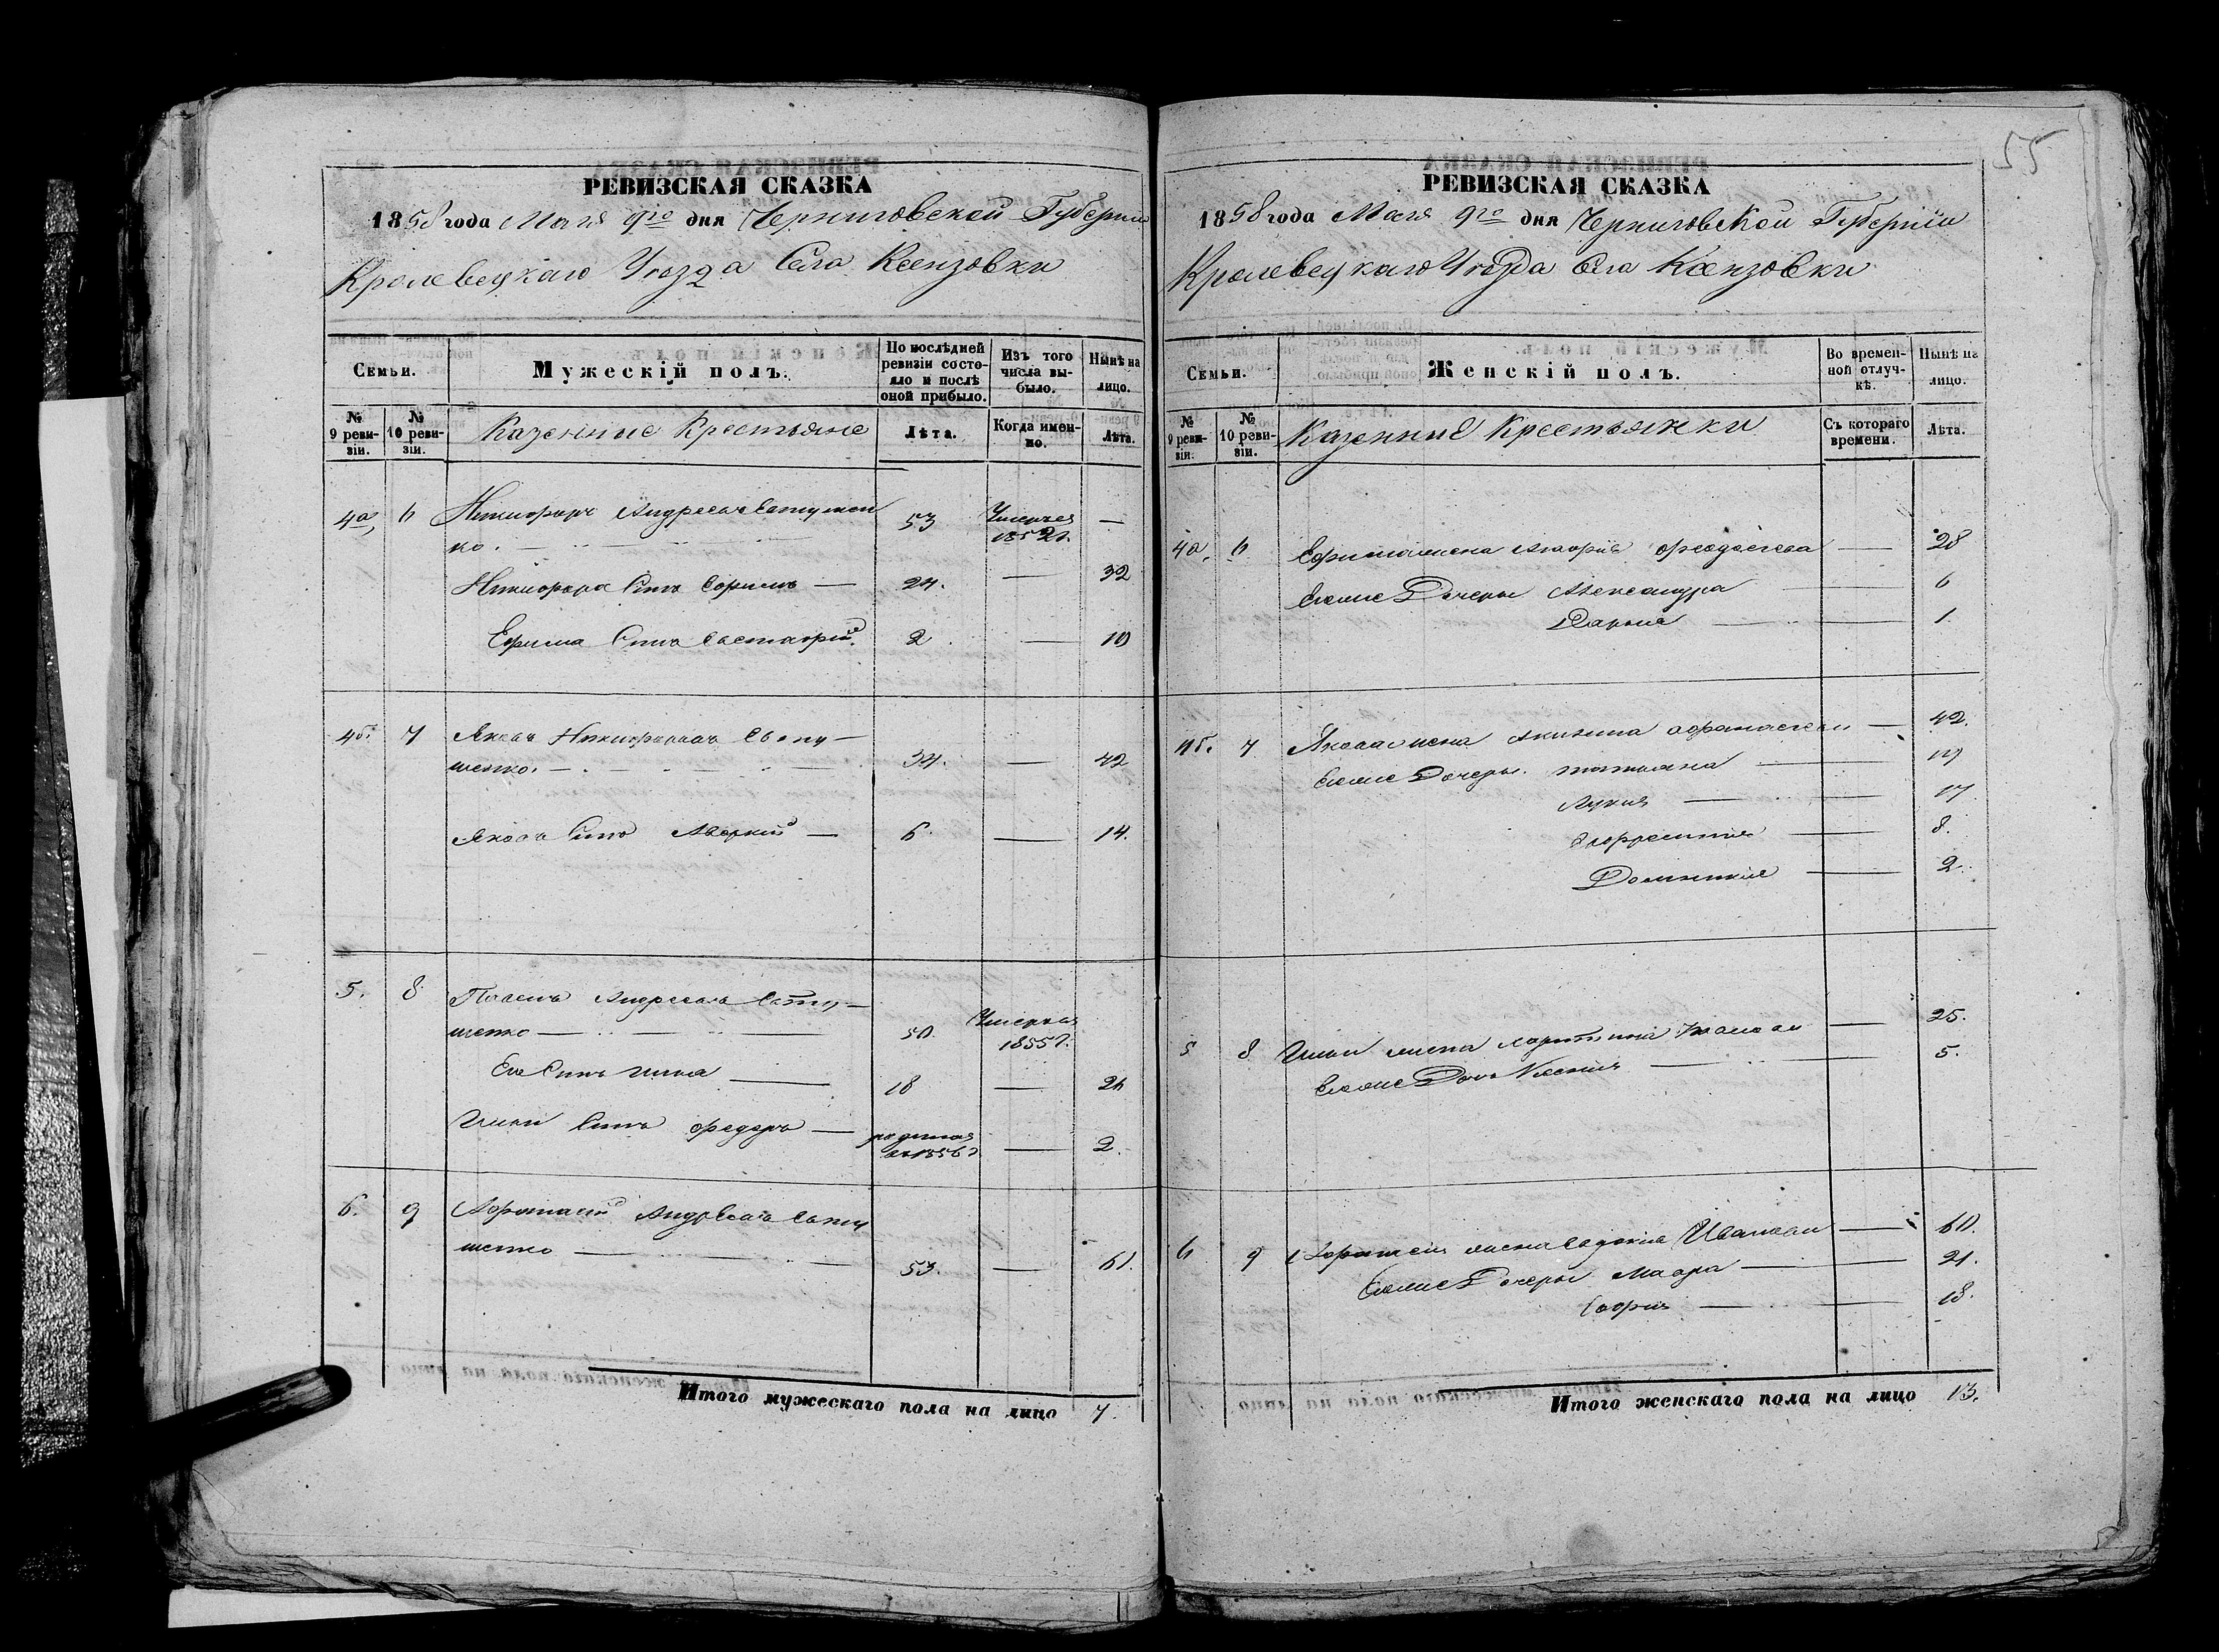 55
РЕВИЗСКАЯ СКАЗКА
1858 года Мая 9го дня Черниговской Губерніи
Кролевецкаго Уезда Села Ксензовки
Семьи.
Мужескій полъ.
По послѣдней ревизіи состояло и послѣ оной прибыло.
Изъ того числа выбыло.
Нынѣ на лицо.
№ 9 ревизіи.
№ 10 ревизіи.
Казенные Крестьяне
Лѣта.
Когда именно.
Лѣта.
4а, 6 Никифоръ Андреевъ 53 Умеръ 1852г. —
ко. —
Никифора Сынъ Ефимъ — 24. — 32
Ефима Сынъ 2 — 10
4б. 7 Яковъ Никифоровъ
шенко. — 34. — 42
Якова Сынъ Аверкій — 6. — 14.
5. 8 Андреевъ
шенко — 50. Умеръ 1855г.
Его Сынъ Илья — 18 — 26
Ильи Сынъ Федоръ — родился въ 1856г — 2.
6. 9 Афанасій Андреевъ
шенко — 53. — 61.
Итого мужескаго пола на лицо 7.
РЕВИЗСКАЯ СКАЗКА
1858 года Мая 9го дня Черниговской Губерніи
Кролевецкаго Уезда Села Ксензовки
Семьи.
Женскій полъ.
Во временной отлучкѣ.
Нынѣ на лицо.
№ 9 ревизіи.
№ 10 ревизіи.
Казенные Крестьянки
Съ котораго времени.
Лѣта.
4а. 6 Ефима жена Марія — 28
Дочеры Александра — 6
Дарья — 1
4б. 7 Якова жена Акилина — 42.
Дочеры Татьяна — 19
Лукия — 17.
— 8.
Домникия — 2.
5 8 Ильи жена — 25.
Дочь Ксения — 5.
6 9 Афанасія жена Евдокия Иванова — 60.
Дочеры Мавра — 21.
Софія — 18.
Итого женскаго пола на лицо 13.